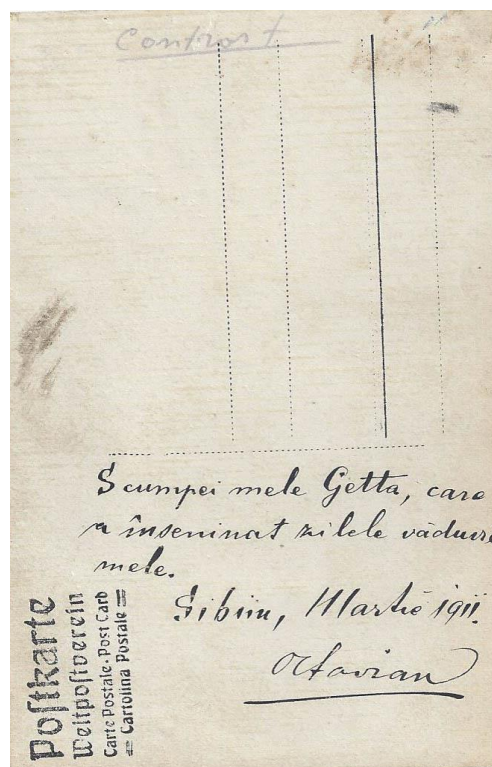 Contrast
Scumpei mele Getta, care
a înseninat zilele văduvi
mele.
Sibiiu, Martie 1911.
Octavian
Poſtkarte
Weltpoſtverein
Carte Postale·Post Card
= Cartolina Postale =